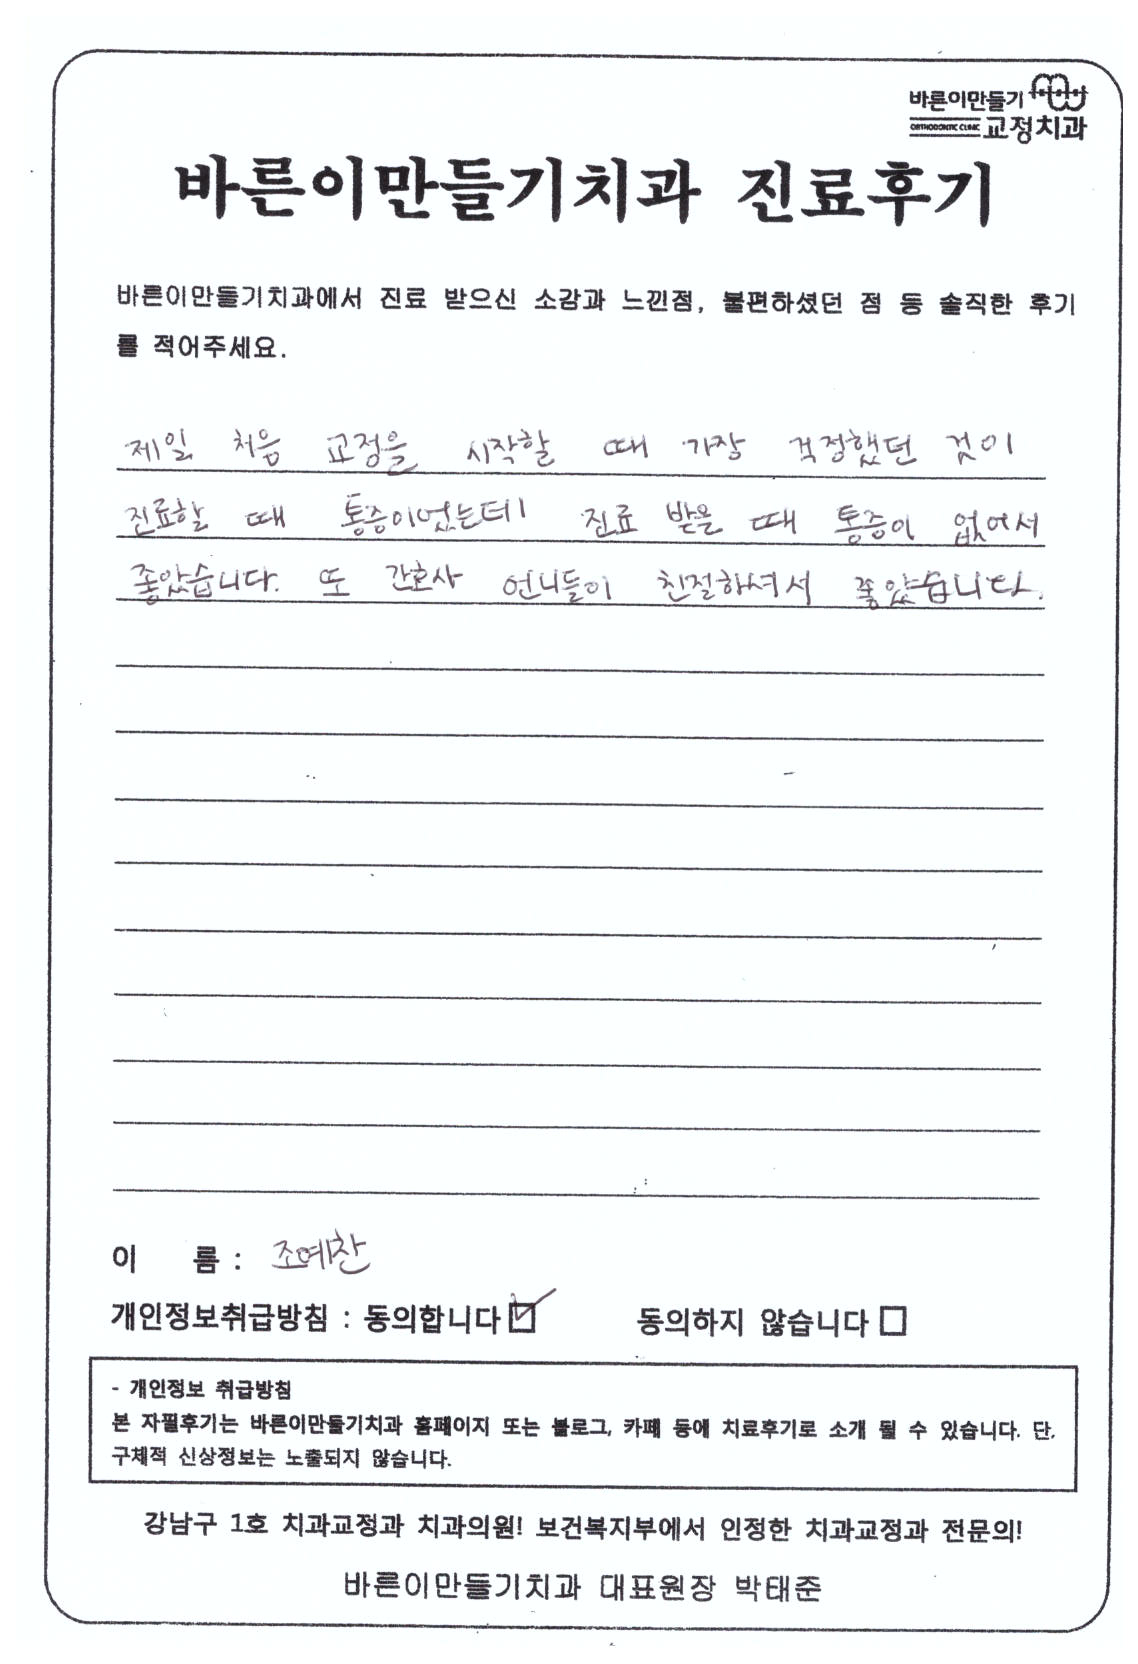 바른이만들기
ORTHODONTIC CLINIC 교정치과
바른이만들기치과 진료후기
바른이만들기치과에서 진료 받으신 소감과 느낀점, 불편하셨던 점 등 솔직한 후기
를 적어주세요.
제일 처음 교정을 시작할 때 가장 걱정했던 것이
진료할 때 통증이었는데 진료 받을 때 통증이 없어서
좋았습니다. 또 간호사 언니들이 친절하셔서 좋았습니다.
이 름 : 조예찬
개인정보취급방침 : 동의합니다 ☑ 동의하지 않습니다 □
- 개인정보 취급방침
본 자필후기는 바른이만들기치과 홈페이지 또는 블로그, 카페 등에 치료후기로 소개 될 수 있습니다. 단,
구체적 신상정보는 노출되지 않습니다.
강남구 1호 치과교정과 치과의원! 보건복지부에서 인정한 치과교정과 전문의!
바른이만들기치과 대표원장 박태준